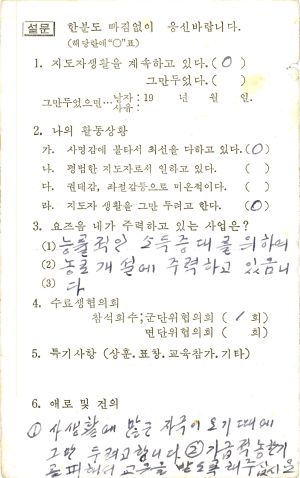 설문 한분도 빠짐없이 응신바랍니다.
(해당란에 "○" 표)
1. 지도자생활을 계속하고 있다. (○)
그만두었다. ( )
그만두었으면…날자 : 19 년 월 일.
사유 :
2. 나의 활동상황
가. 사명감에 불타서 최선을 다하고 있다. (○)
나. 평범한 지도자로서 일하고 있다. ( )
다. 권태감, 좌절감등으로 미온적이다. ( )
라. 지도자 생활을 그만 두려고 한다. (○)
3. 요즈음 내가 주력하고 있는 사업은?
(1) 능률적인 소득증대를 위하여
(2) 농로개설에 주력하고 있음니
(3) 다
4. 수료생협의회
참석회수 ; 군단위협의회 ( / 회)
면단위협의회 ( 회)
5. 특기사항 (상훈. 표창. 교육참가. 기타)
6. 애로 및 건의
① 사생활에 많은 자극이 오기 때에
그만 두려고 합니다 ② 가급적 농한기
교육을 받도록 해주십시요